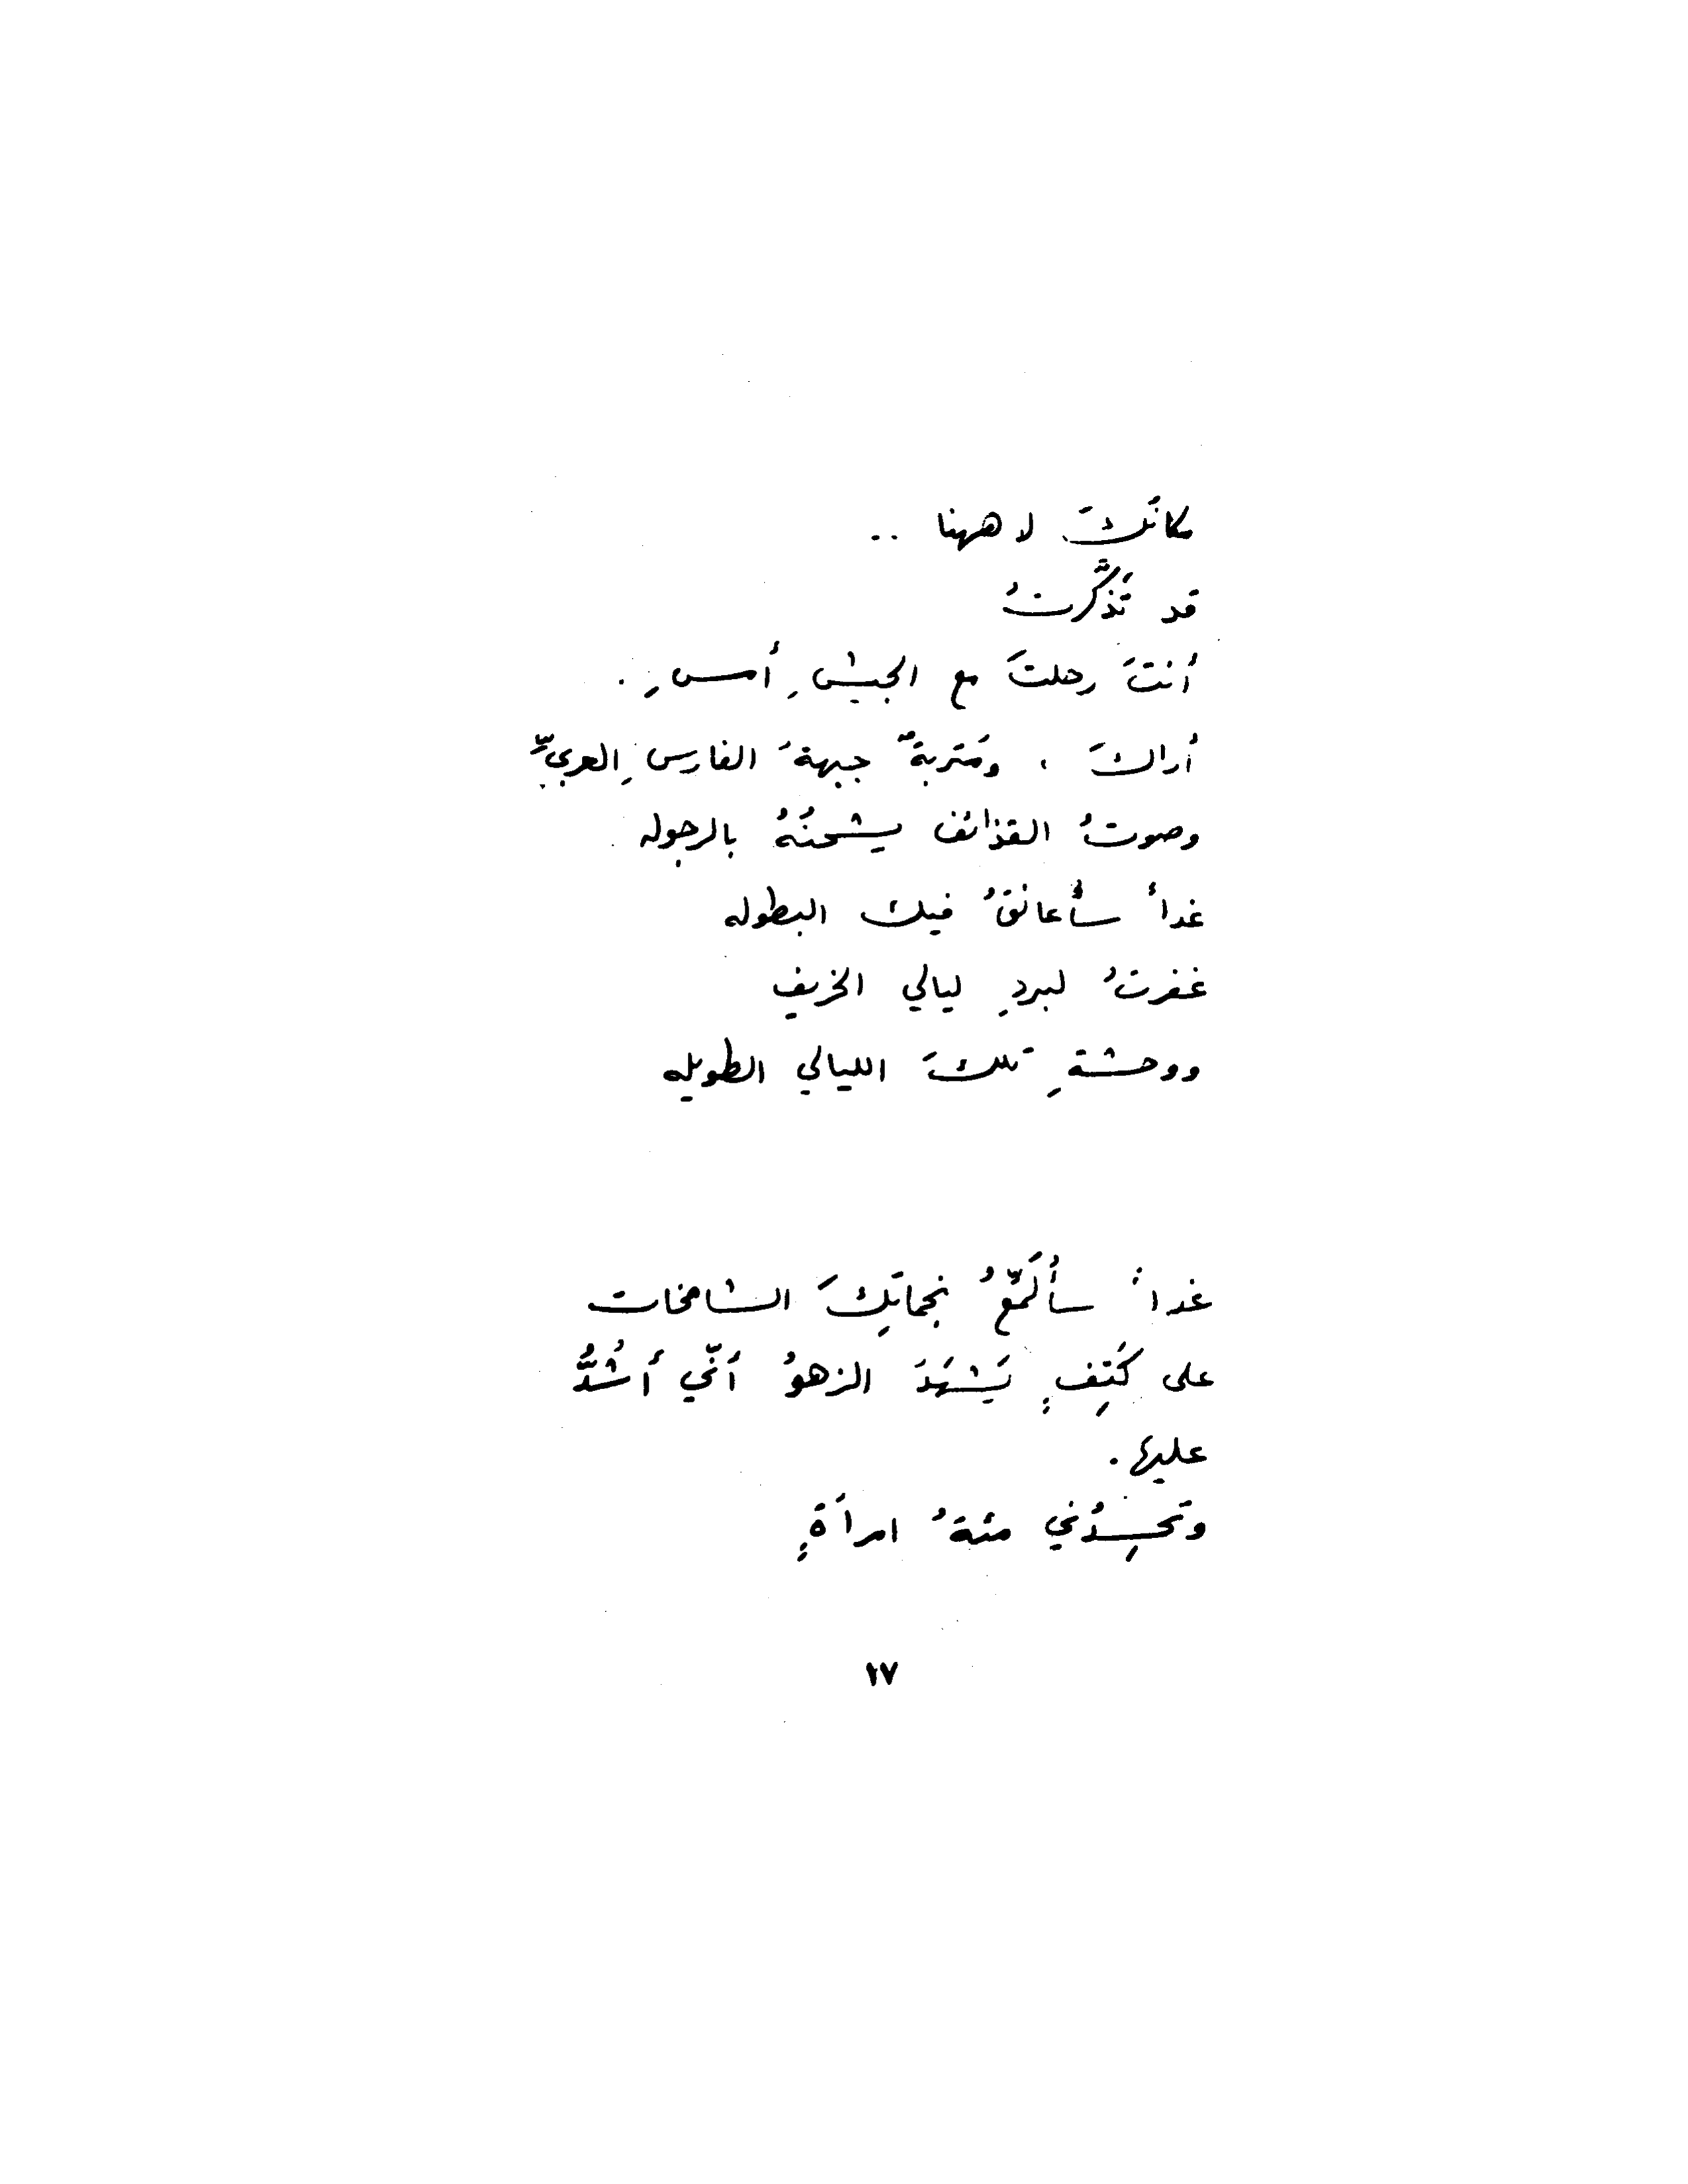 مكانَكَ لا ههنا ..
قد تَذكَّرتُ
أنتَ رحلتَ مع الجيشِ أمسِ .
أراكَ ، ومَتربةٌ جبهةُ الفارسِ العربيِّ
وصوتُ القذائف يشحنُهُ بالرجوله
غداً سأعانقُ فيك البطوله
غفرتُ لبردِ ليالي الخريفِ
ووحشةِ تلكَ الليالي الطويله
غداً سأُلَمّعُ نجماتِكَ الشامخات
على كَتِفٍ يَشهَدَ الزهوُ أنّي أَشُدُّ
عليها .
وتحسِدُني مئةُ امرأةٍ
١٧